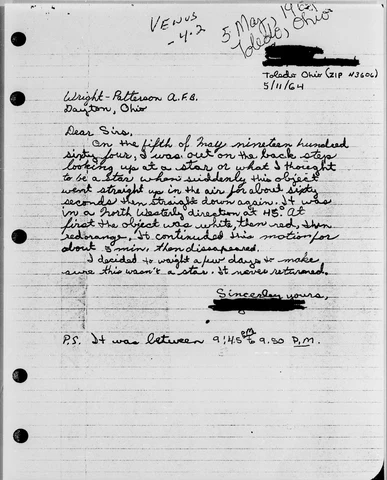 VENUS
-4.2
5 May, 1964
Toledo, Ohio
Toledo Ohio (ZIP 43606)
5/11/64
Wright-Patterson A.F.B.
Dayton, Ohio
Dear Sirs,
On the fifth of May nineteen hundred
sixty four, I was out on the back step
looking up at a star or what I thought
to be a star when suddenly this object
went straight up in the air for about sixty
seconds then straight down again. It was
in a North Westerly direction at 45°. At
first the object was white, then red, then
redorange, It continued this motion for
about 3 min. then dissapeared.
I decided to waight a few days to make
sure this wasn't a star. It never returned.
Sincerley yours,
P.S. It was between 9:45 PM to 9:50 P.M.